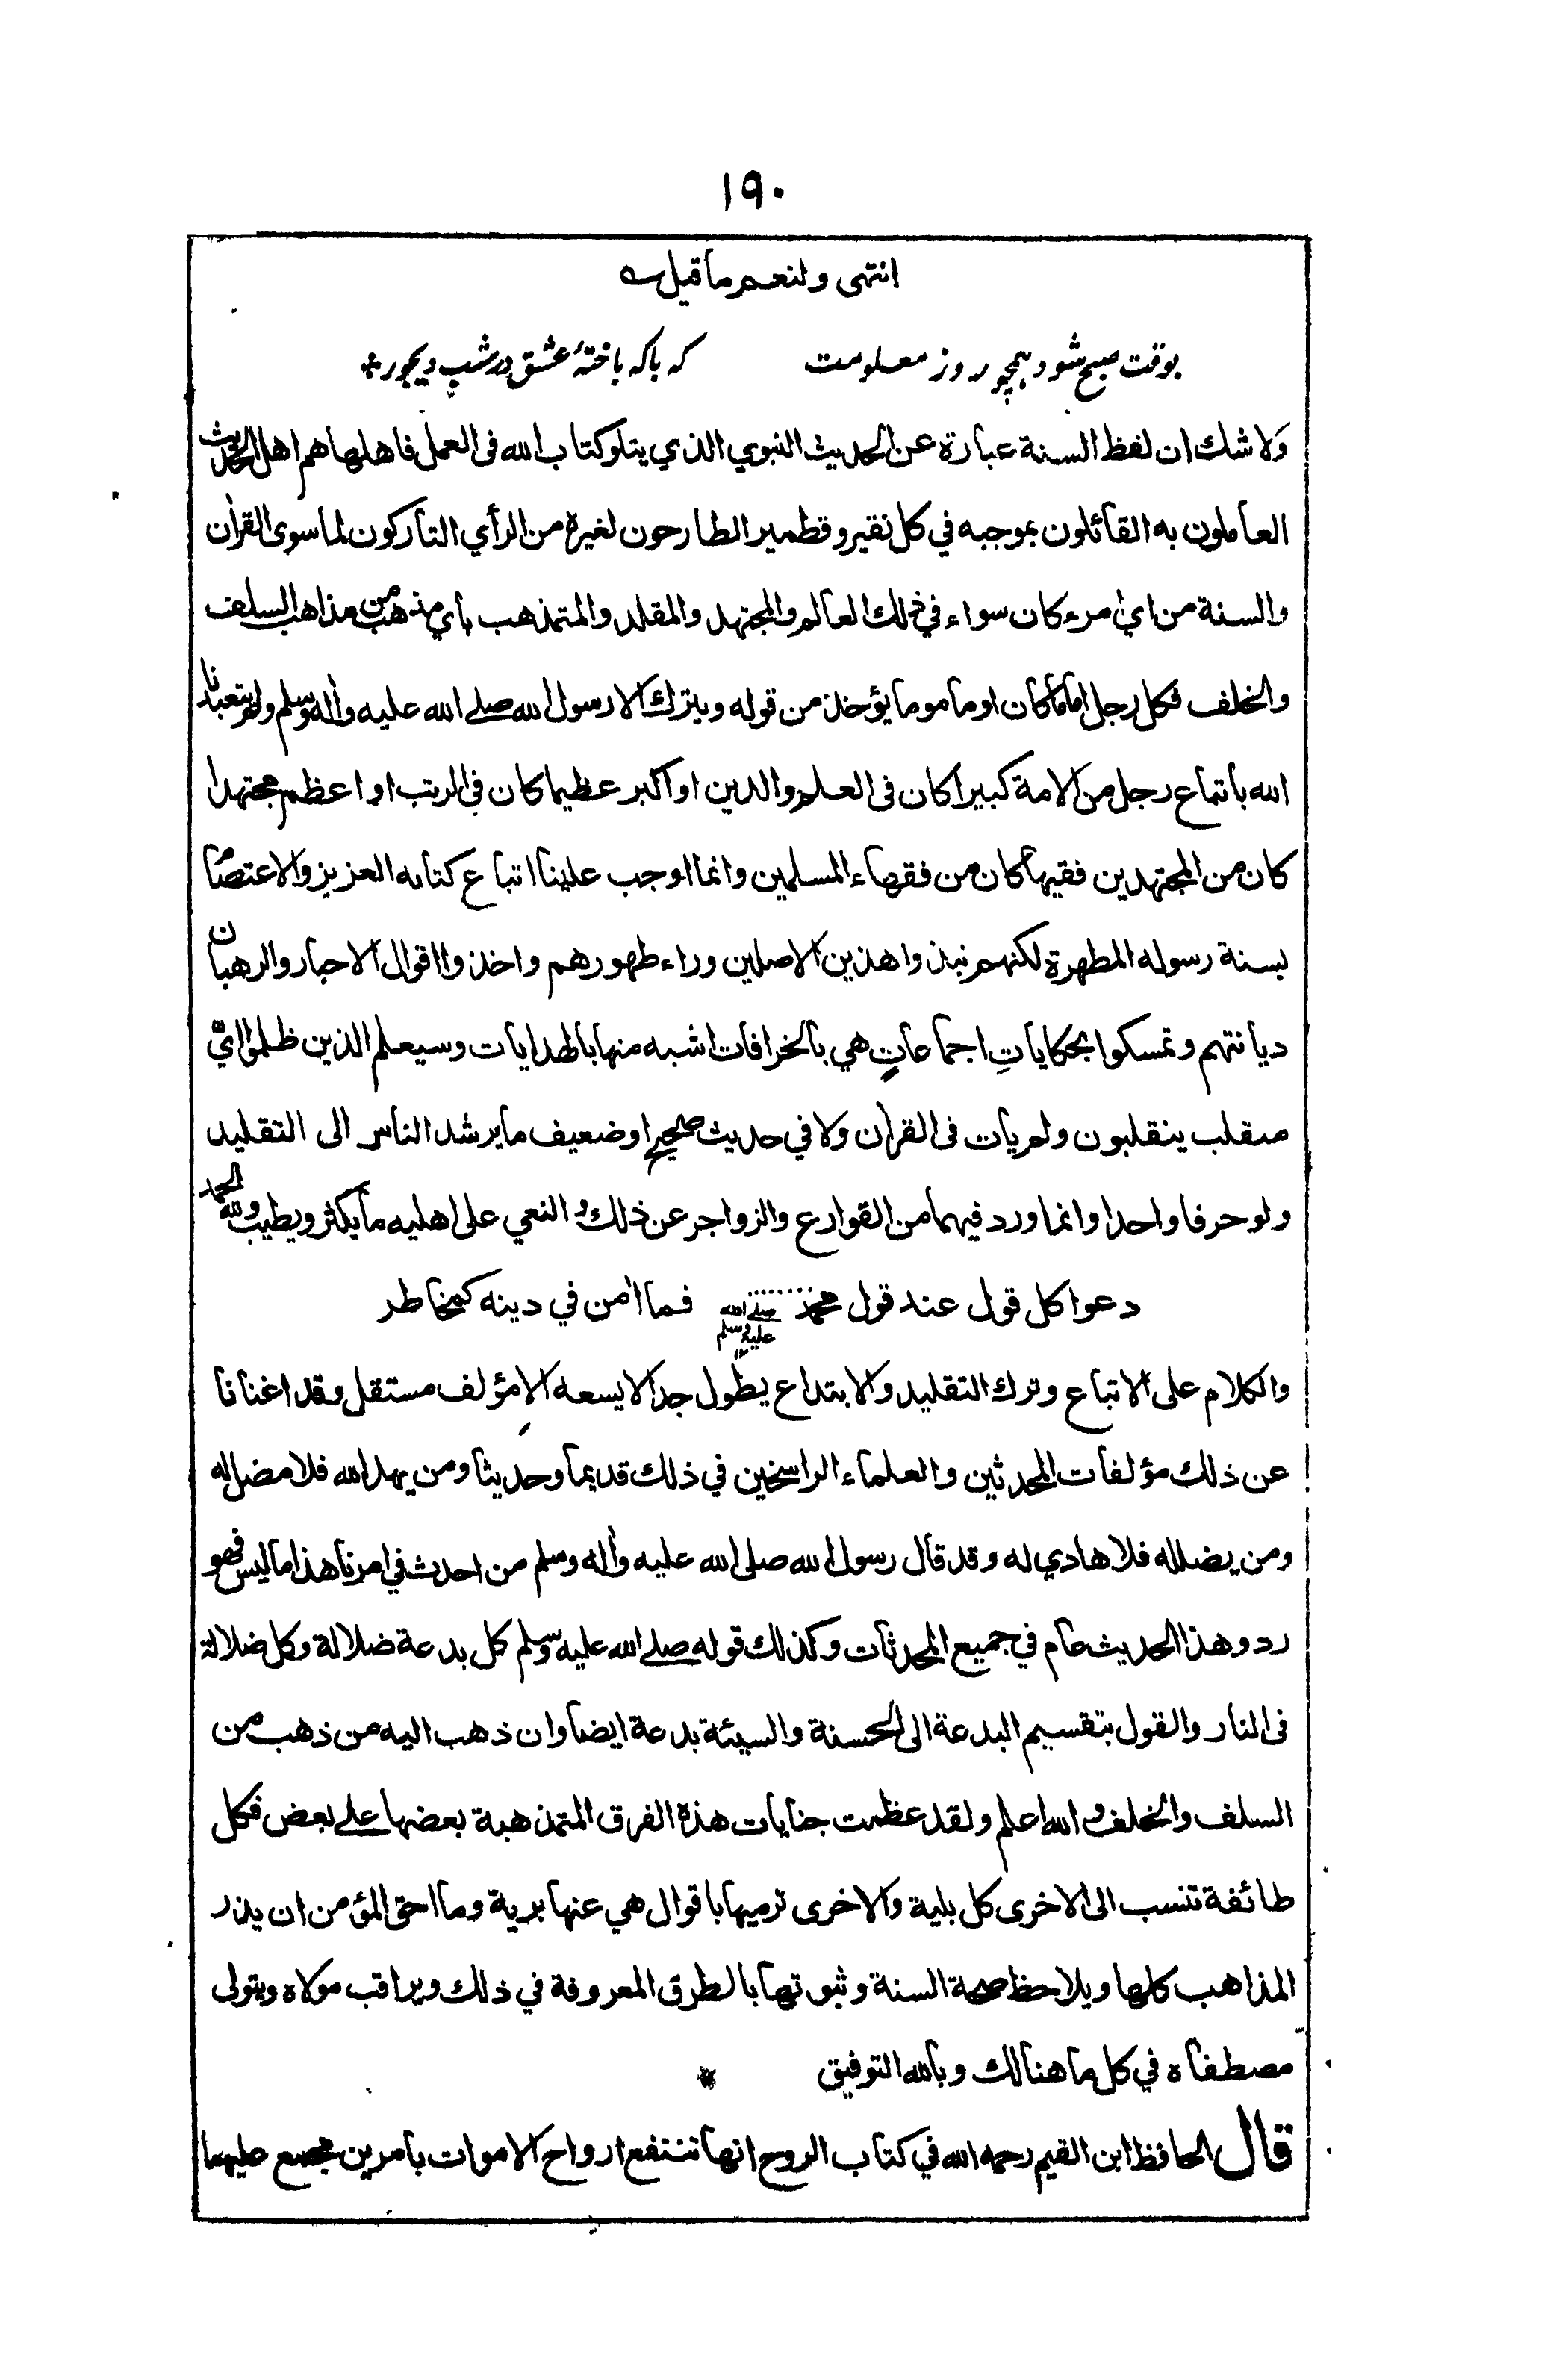 ١٩٠
انتهى ولنعم ما قيل ؎
بوقت صبح شود همچو روز معلومت   كه باكه باختۀ عشق در شب ديجور
ولا شك ان لفظ السنة عبارة عن الحديث النبوي الذي يتلو كتاب الله فى العمل فاهلها هم اهل الحديث
العاملون به القائلون بموجبه في كل نقير وقطمير الطارحون لغيره من الرأي التاركون لما سوى القرأن
والسنة من اي امرء كان سواء في ذلك العالم والمجتهد والمقلد والمتمذهب باي مذهب من مذاهب السلف
والخلف فكل رجل اماما كان او ماموما يؤخذ من قوله ويترك الا رسول الله صلے الله عليه واٰله وسلم ولم يتعبدنا
الله باتباع رجل من الامة كبيرا كان فى العلم والدين او اكبر عظيما كان في الرتب او اعظم مجتهدا
كان من المجتهدين فقيها كان من فقهاء المسلمين وانما اوجب علينا اتباع كتابه العزيز والاعتصام
بسنة رسوله المطهرة لكنهم نبذوا هذين الاصلين وراء ظهورهم واخذوا اقوال الاحبار والرهبان
ديانتهم وتمسكوا بحكاياتِ اجماعاتٍ هي بالخرافات اشبه منها بالهدايات وسيعلم الذين ظلموا ايّ
منقلب ينقلبون ولم يات فى القرأن ولا في حديث صحيح او ضعيف ما يرشد الناس الى التقليد
ولو حرفا واحدا وانما ورد فيهما من القوارع والزواجر عن ذلك والنعي على اهليه ما يكثر ويطيب ولله الحمد
دعوا كل قول عند قول محمد صلے الله عليه وسلم   فما اٰمن في دينه كمخاطر
والكلام على الاتباع وترك التقليد والابتداع يطول جدا لا يسعه الا مؤلف مستقل وقد اغنانا
عن ذلك مؤلفات المحدثين والعلماء الراسخين في ذلك قديما وحديثا ومن يهد الله فلا مضل له
ومن يضلله فلا هادي له وقد قال رسول الله صلى الله عليه واٰله وسلم من احدث في امرنا هذا ما ليس فهو
رد وهذا الحديث عام في جميع المحدثات وكذلك قوله صلے الله عليه وسلم كل بدعة ضلالة وكل ضلالة
فى النار والقول بتقسيم البدعة الى الحسنة والسيئة بدعة ايضا وان ذهب اليه من ذهب من
السلف والخلف والله اعلم ولقد عظمت جنايات هذه الفرق المتمذهبة بعضها علے بعض فكل
طائفة تنسب الى الاخرى كل بلية والاخرى ترميها باقوال هي عنها برية وما احق المؤمن ان يذر
المذاهب كلها ويلاحظ صحة السنة وثبوتها بالطرق المعروفة في ذلك ويراقب مولاه ويتولى
مصطفاه في كل ما هنالك وبالله التوفيق *
قال الحافظ ابن القيم رحمه الله في كتاب الروح انها تنتفع ارواح الاموات بامرين مجمع عليهما